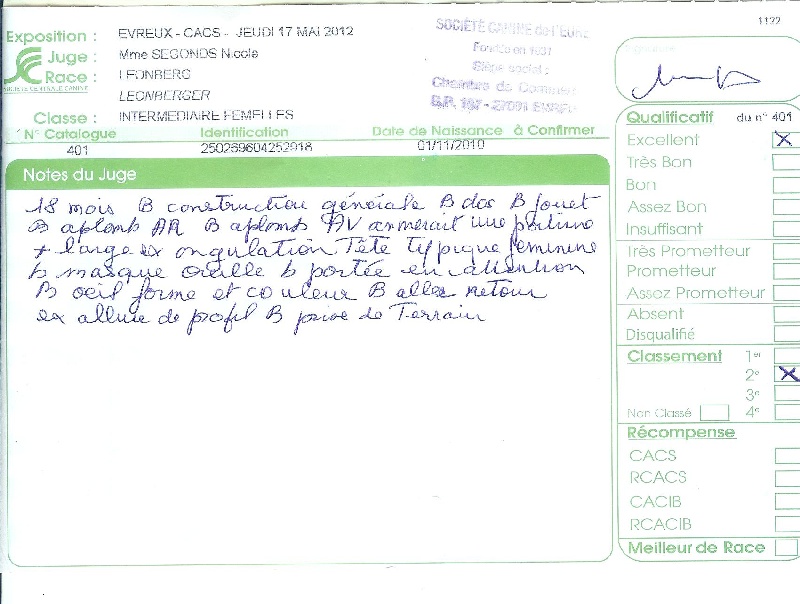 1122
Exposition : EVREUX - CACS - JEUDI 17 MAI 2012
Juge : Mme SEGONDS Nicole
Race : LEONBERG
LEONBERGER
Classe : INTERMEDIAIRE FEMELLES
SOCIÉTÉ CENTRALE CANINE
SOCIÉTÉ CANINE de l'EURE
Fondée en
Siège social :
Chambre de
B.P. - 27091 EVREUX
Signature
N° Catalogue Identification Date de Naissance à Confirmer
401 250269604252918 01/11/2010
Notes du Juge
18 mois B construction générale B dos B fouet
B aplombs AR B aplombs AV aimerait une poitrine
+ large ex angulation Tête typique féminine
b masque oreille b portée en attention
B oeil forme et couleur B aller retour
ex allure de profil B prise de Terrain
Qualificatif du n° 401
Excellent X
Très Bon
Bon
Assez Bon
Insuffisant
Très Prometteur
Prometteur
Assez Prometteur
Absent
Disqualifié
Classement 1er
2e X
3e
Non Classé 4e
Récompense
CACS
RCACS
CACIB
RCACIB
Meilleur de Race